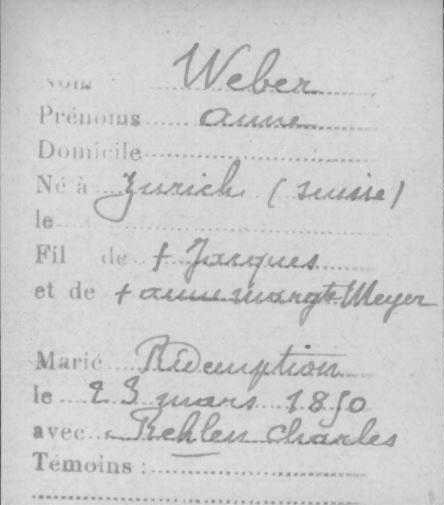 Nom Weber
Prénoms anne
Domicile
Né à Zurich (suisse)
le
Fil de + Jacques
et de + anne margte Meyer
Marié Rédemption
le 23 mars 1850
avec Rehlen Charles
Témoins :